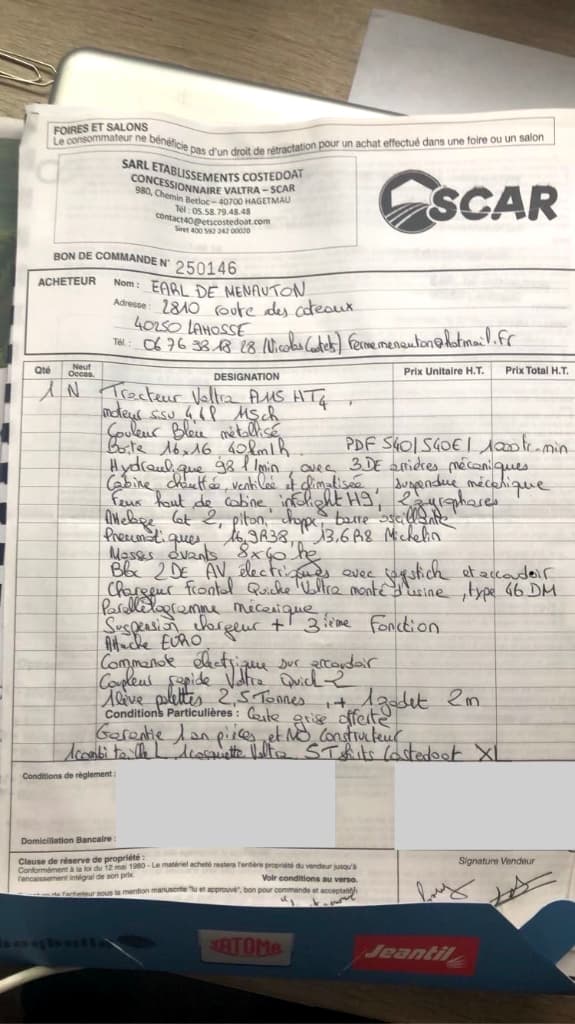 FOIRES ET SALONS
Le consommateur ne bénéficie pas d'un droit de rétractation pour un achat effectué dans une foire ou un salon
SARL ETABLISSEMENTS COSTEDOAT
CONCESSIONNAIRE VALTRA – SCAR
980, Chemin Betloc – 40700 HAGETMAU
Tél : 05.58.79.48.48
contact40@etscostedoat.com
Siret 400 592 242 00020
SCAR
BON DE COMMANDE N° 250146
ACHETEUR
Nom : EARL DE MENAUTON
Adresse : 2810 route des coteaux
40250 LAHOSSE
Tél : 06 76 33 18 28 (Nicolas) fermemenauton@hotmail.fr
Qté Neuf Occas. DESIGNATION Prix Unitaire H.T. Prix Total H.T.
1 N Tracteur Valtra HT4
moteur 4.4P
Couleur Bleu métallisé
Boite 16x16 40km/h PDF 540/540E/1000 tr.min
Hydraulique 98 l/min, avec 3 DE arrières mécaniques
Cabine chauffée, ventilée et climatisée, suspendue mécanique
Feux haut de cabine, infolight H9, 2 gyrophares
Attelage Cat 2, piton, chape, barre oscillante
Pneumatiques 16,9R38, 13,6R8 Michelin
Masses avants 8x40 kg
Bloc 2DE AV électriques avec joystick et accoudoir
Chargeur Frontal Quicke Valtra monté d'usine, type 46 DM
Parallélogramme mécanique
Suspension chargeur + 3ième Fonction
Attache EURO
Commande électrique sur accoudoir
Coupleur rapide Valtra Quick-2
1 lève palettes 2,5 Tonnes, + 1 godet 2m
Conditions Particulières : Carte grise offerte
Garantie 1 an pièces et MO Constructeur
1 combi taille L 1 casquette Valtra 5 T shirts Costedoat XL
Conditions de règlement :
Domiciliation Bancaire :
Clause de réserve de propriété :
Conformément à la loi du 12 mai 1980 - Le matériel acheté restera l'entière propriété du vendeur jusqu'à
l'encaissement intégral de son prix.
Voir conditions au verso.
Signature Vendeur
de l'acheteur sous la mention manuscrite "lu et approuvé", bon pour commande et acceptation
SATOMA
Jeantil